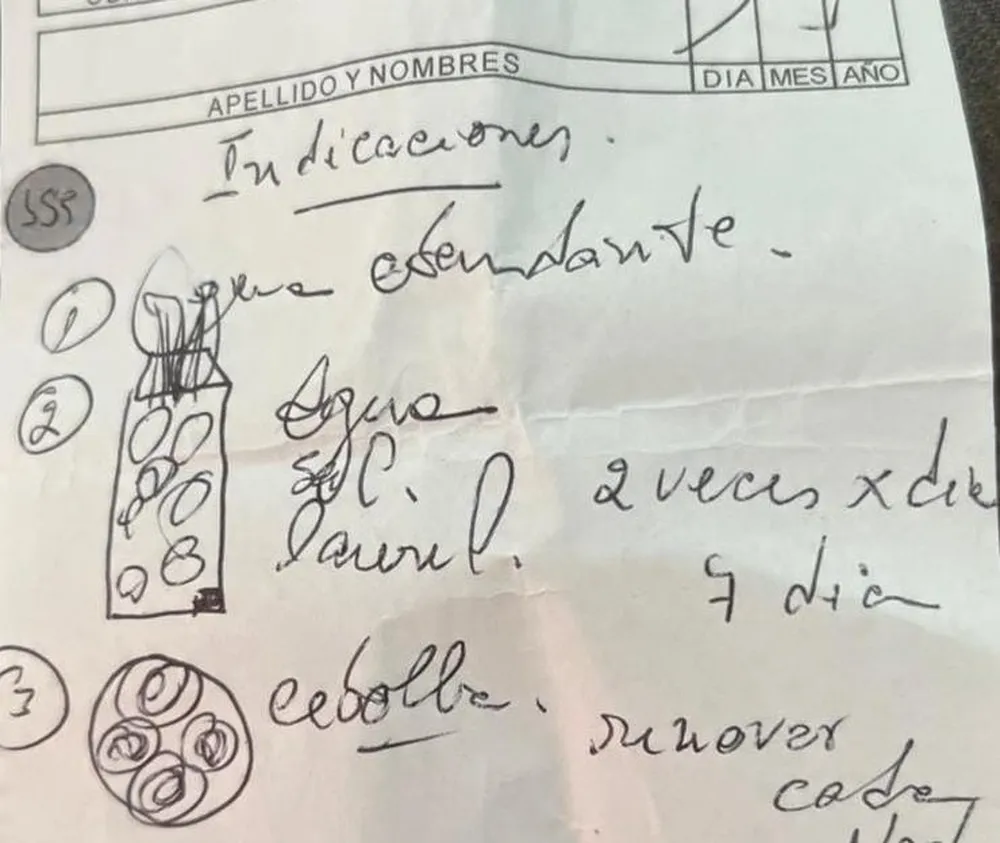 APELLIDO Y NOMBRES DIA MES AÑO
Indicaciones.
1 agua abundante.
2 Agua
sal.
laurel.
2 veces x dia
7 dia
3 cebolla.
renover
cada